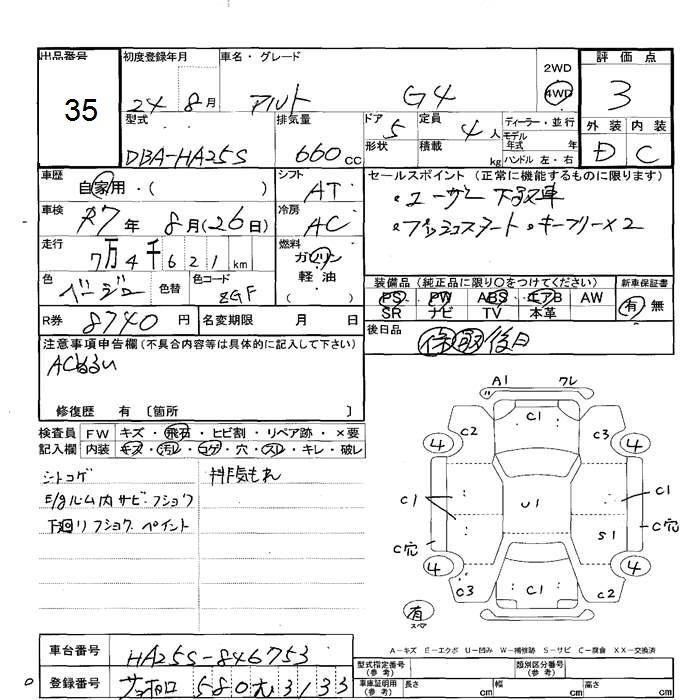 出品番号 初度登録年月 車名・グレード 2WD 4WD 評価点
35 24年8月 アルト G4 3
型式 排気量 ドア 定員 ディーラー・並行 外装 内装
DBA-HA25S 660cc 5 4人 モデル年式 年 D C
形状 積載 kg ハンドル 左・右
車歴 自家用・( ) シフト AT セールスポイント(正常に機能するものに限ります)
車検 R7年8月(26日) 冷房 AC ・ユーザー下取車
・プッシュスタート・キーフリー×2
走行 7万4千621km 燃料 ガソリン 軽油
色 ベージュ 色替 色コード ZGF 装備品(純正品に限り○をつけてください) 新車保証書
PS PW ABS エアB AW 有 無
SR ナビ TV 本革
R券 8740円 名変期限 月 日 後日品
保 取 後日
注意事項申告欄(不具合内容等は具体的に記入して下さい)
ACぬるい
修復歴 有〔箇所 〕
検査員 FW キズ・飛石・ヒビ割・リペア跡・×要
記入欄 内装 キズ・汚レ・コゲ・穴・スレ・キレ・破レ
シートコゲ 排気もれ
E/gルーム内サビ・フショク
下廻りフショク ペイント
A1 ワレ
C1
C2 C3
4 4
C1 U1 C1
C穴 S1 C穴
4 4
C3 C1 C2
有
スペア
A-キズ E-エクボ U-凹み W-補修跡 S-サビ C-腐食 XX-交換済
車台番号 HA25S-846753
型式指定番号(参考) 類別区分番号(参考)
登録番号 サッポロ 580 む 3133
車庫証明用(参考) 長さ cm 幅 cm 高さ cm